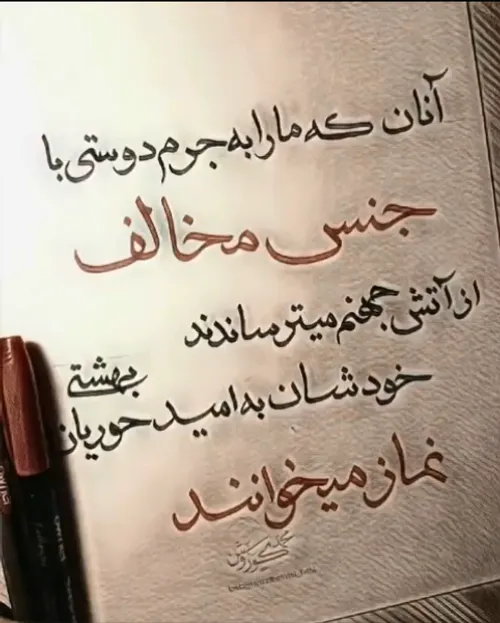 آنان که ما را به جرم دوستی با
جنس مخالف
از آتش جهنم میترساندند
خودشان به امید حوریان بهشتی
نماز میخوانند